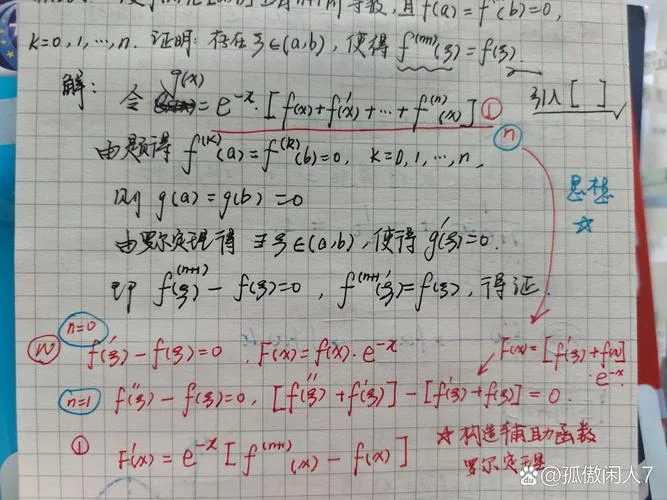 在[a,b]上具有n+1阶导数,且f(a)=f^{(k)}(b)=0,
k=0,1,…,n. 证明:存在ξ∈(a,b),使得 f^{(n+1)}(ξ)=f(ξ).
解: 令 g(x) = e^{-x}·[f(x)+f'(x)+…+f^{(n)}(x)] ①
引入[ ]
n
由题得 f^{(k)}(a)=f^{(k)}(b)=0, k=0,1,…,n,
思想
☆
则 g(a)=g(b)=0
由罗尔定理得 ∃ξ∈(a,b),使得g'(ξ)=0.
即 f^{(n+1)}(ξ)-f(ξ)=0, f^{(n+1)}(ξ)=f(ξ),得证.
n=0
f'(ξ)-f(ξ)=0. F(x)=f(x)·e^{-x}
F(x)=[f'(ξ)+f(x)]
·e^{-x}
n=1 f''(ξ)-f(ξ)=0, [f''(ξ)+f'(ξ)]-[f'(ξ)+f(ξ)]=0.
① F'(x)=e^{-x}[f^{(n+1)}(x)-f(x)]
☆构造辅助函数
罗尔定理
@孤傲闲人7